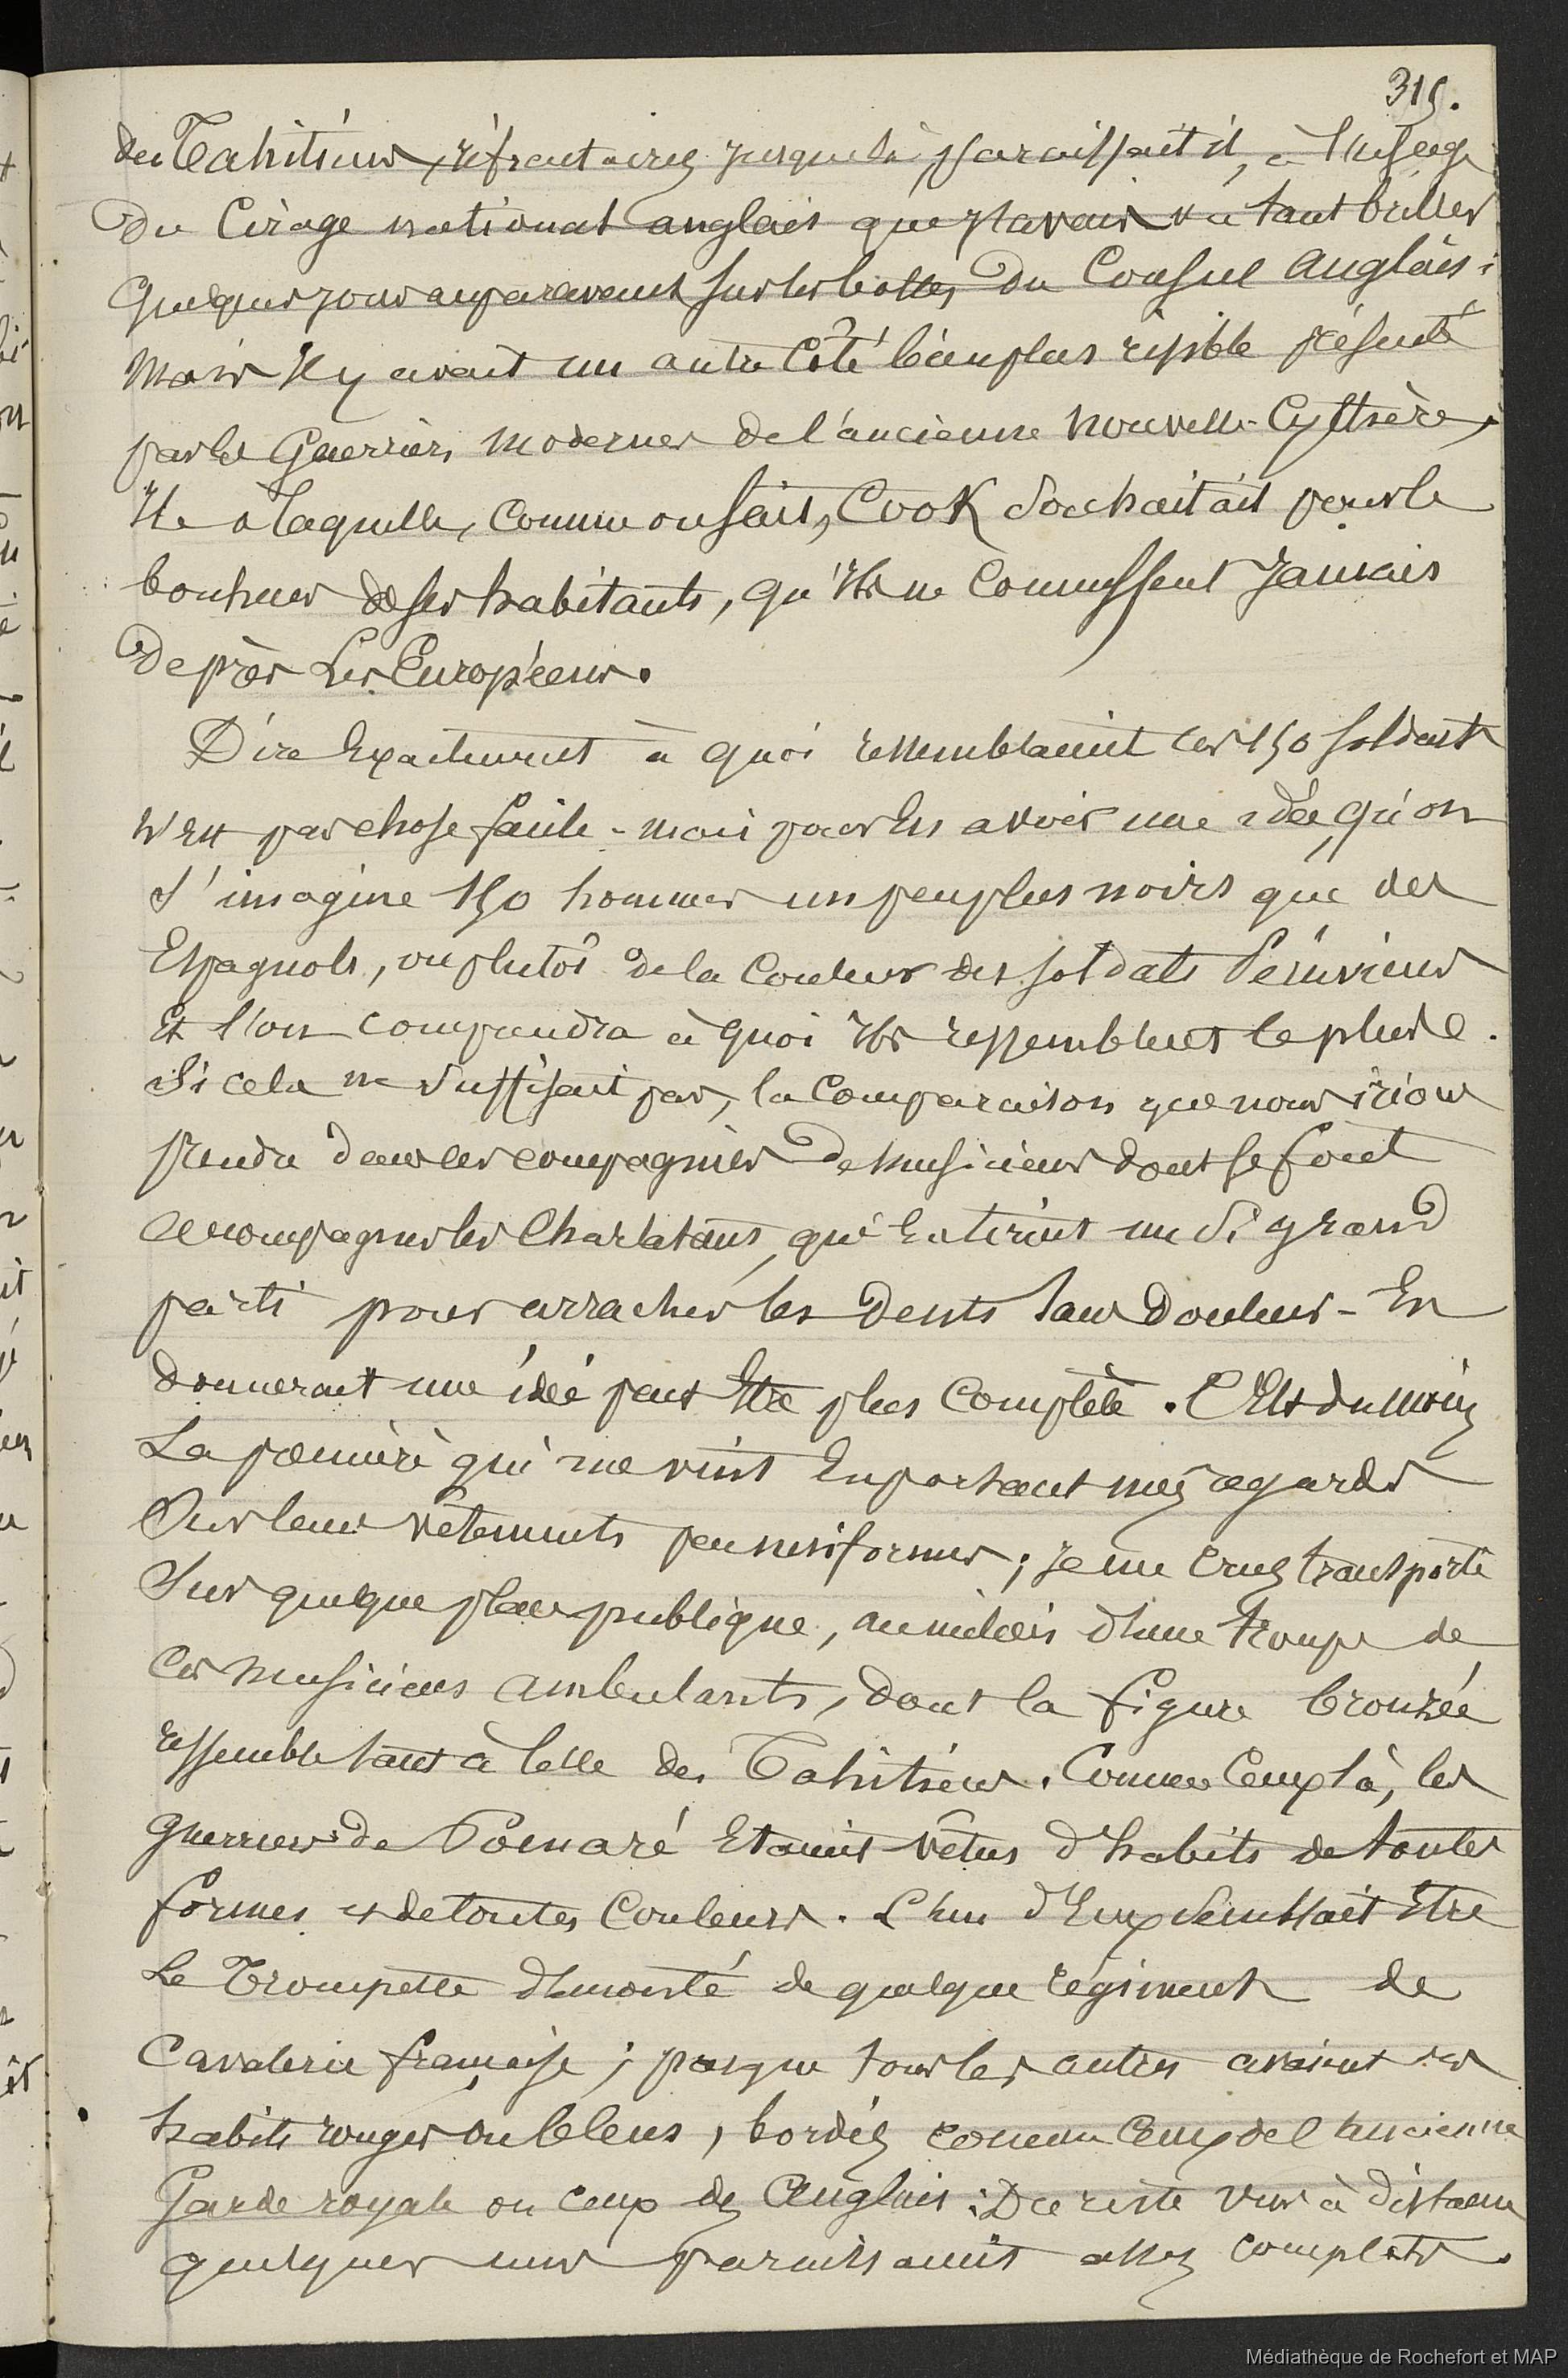 315.
des Tahitiens, réfractaires jusque là, paraissait il, à l'usage
du Cirage national anglais que j'avais vu tant briller
quelques jours auparavant sur les bottes du Consul Anglais :
mais il y avait un autre Côté bien plus risible présenté
par les Guerriers modernes de l'ancienne Nouvelle-Cythère,
Ile à laquelle, comme on sait, Cook souhaitait pour le
bonheur de ses habitants, qu'ils ne connussent Jamais
de près Les Européens.
Dire Exactement à quoi ressemblaient ces 150 soldats
n'est pas chose facile - mais pour en avoir une idée, qu'on
s'imagine 150 hommes un peu plus noirs que des
Espagnols, ou plutôt de la Couleur des soldats Péruviens
Et l'on comprendra à quoi ils ressemblent le plus.
Si cela ne suffisait pas, la Comparaison que nous irions
prendre dans les compagnies de musiciens dont se font
accompagner les Charlatans, qui en tirent un si grand
parti pour arracher les Dents sans Douleur - En
donnerait une idée peut Etre plus Complète. C'Est du moins
La première qui me vint En portant mes regards
Sur leurs vêtements peu uniformes ; Je me crus transporté
Sur quelque place publique, au milieu d'une troupe de
Ces musiciens ambulants, dont la figure bronzée
ressemble tant à Celle des Tahitiens. Comme Ceux là, les
guerriers de Pomaré Etaient vêtus d'habits de toutes
formes et de toutes Couleurs. L'un d'Eux semblait Etre
Le Trompette démonté de quelque régiment de
Cavalerie française ; presque tous les autres avaient des
habits rouges ou bleus, bordés comme Ceux de l'ancienne
Garde royale ou ceux des Anglais : Du reste vus à distance
quelques uns paraissaient assez complets.
Médiathèque de Rochefort et MAP